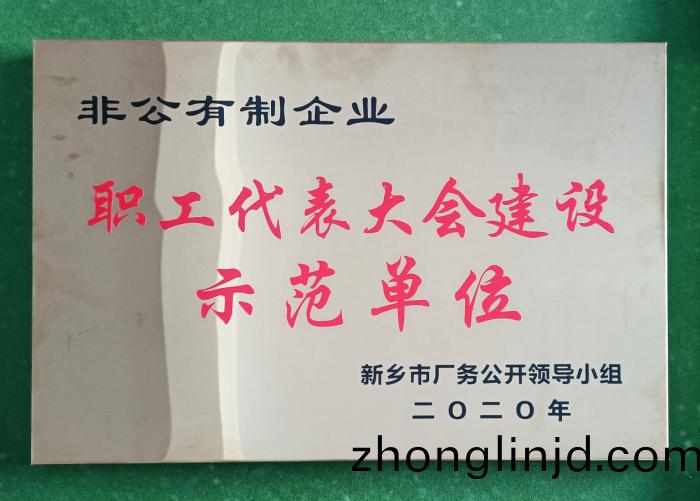 非公有制企业
职工代表大会建设
示范单位
新乡市厂务公开领导小组
二〇二〇年
zhonglinjd.com